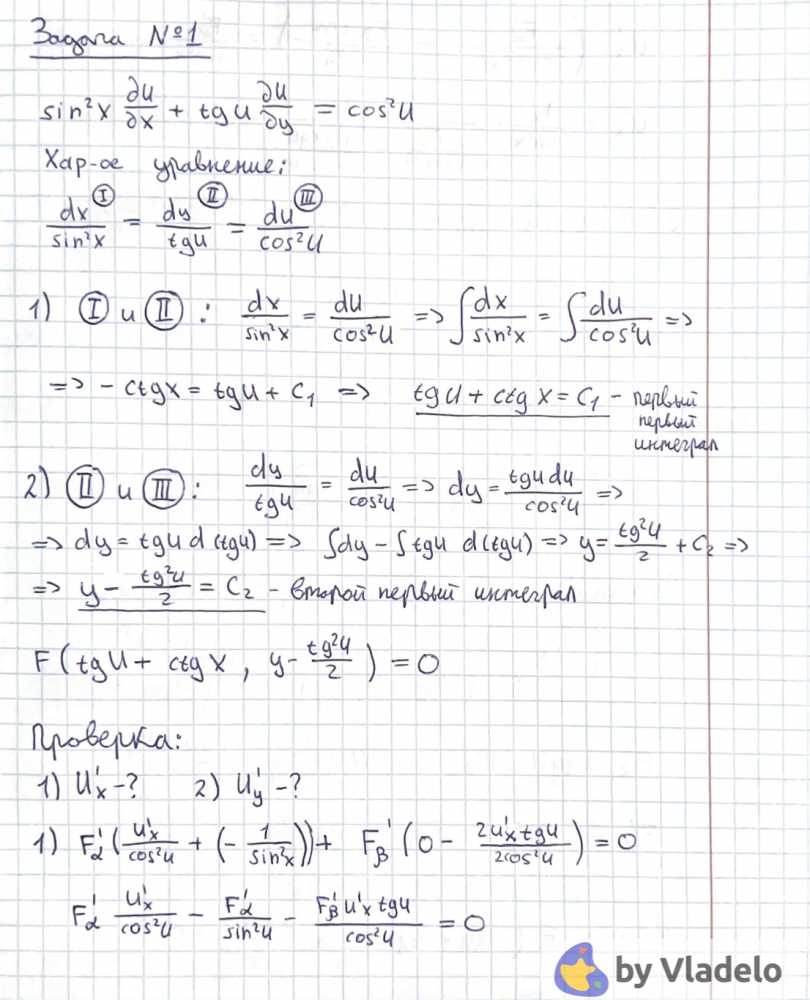 Задача №1
sin²x ∂u/∂x + tgu ∂u/∂y = cos²u
Хар-ое уравнение:
dx/sin²x Ⓘ = dy/tgu Ⅱ = du/cos²u Ⅲ
1) Ⓘ и Ⅱ : dx/sin²x = du/cos²u => ∫dx/sin²x = ∫du/cos²u =>
=> - ctgx = tgu + C₁ => tgu + ctg x = C₁ - первый
первый
интеграл
2) Ⅱ и Ⅲ : dy/tgu = du/cos²u => dy = tgu du/cos²u =>
=> dy = tgu d(tgu) => ∫dy - ∫tgu d(tgu) => y = tg²u/2 + C₂ =>
=> y - tg²u/2 = C₂ - второй первый интеграл
F(tgu + ctgx, y - tg²u/2) = 0
Проверка:
1) u'x - ? 2) u'y - ?
1) F'α (u'x/cos²u + (- 1/sin²x)) + F'β (0 - 2u'x tgu/2cos²u) = 0
F'α u'x/cos²u - F'α/sin²u - F'β u'x tgu/cos²u = 0
by Vladelo